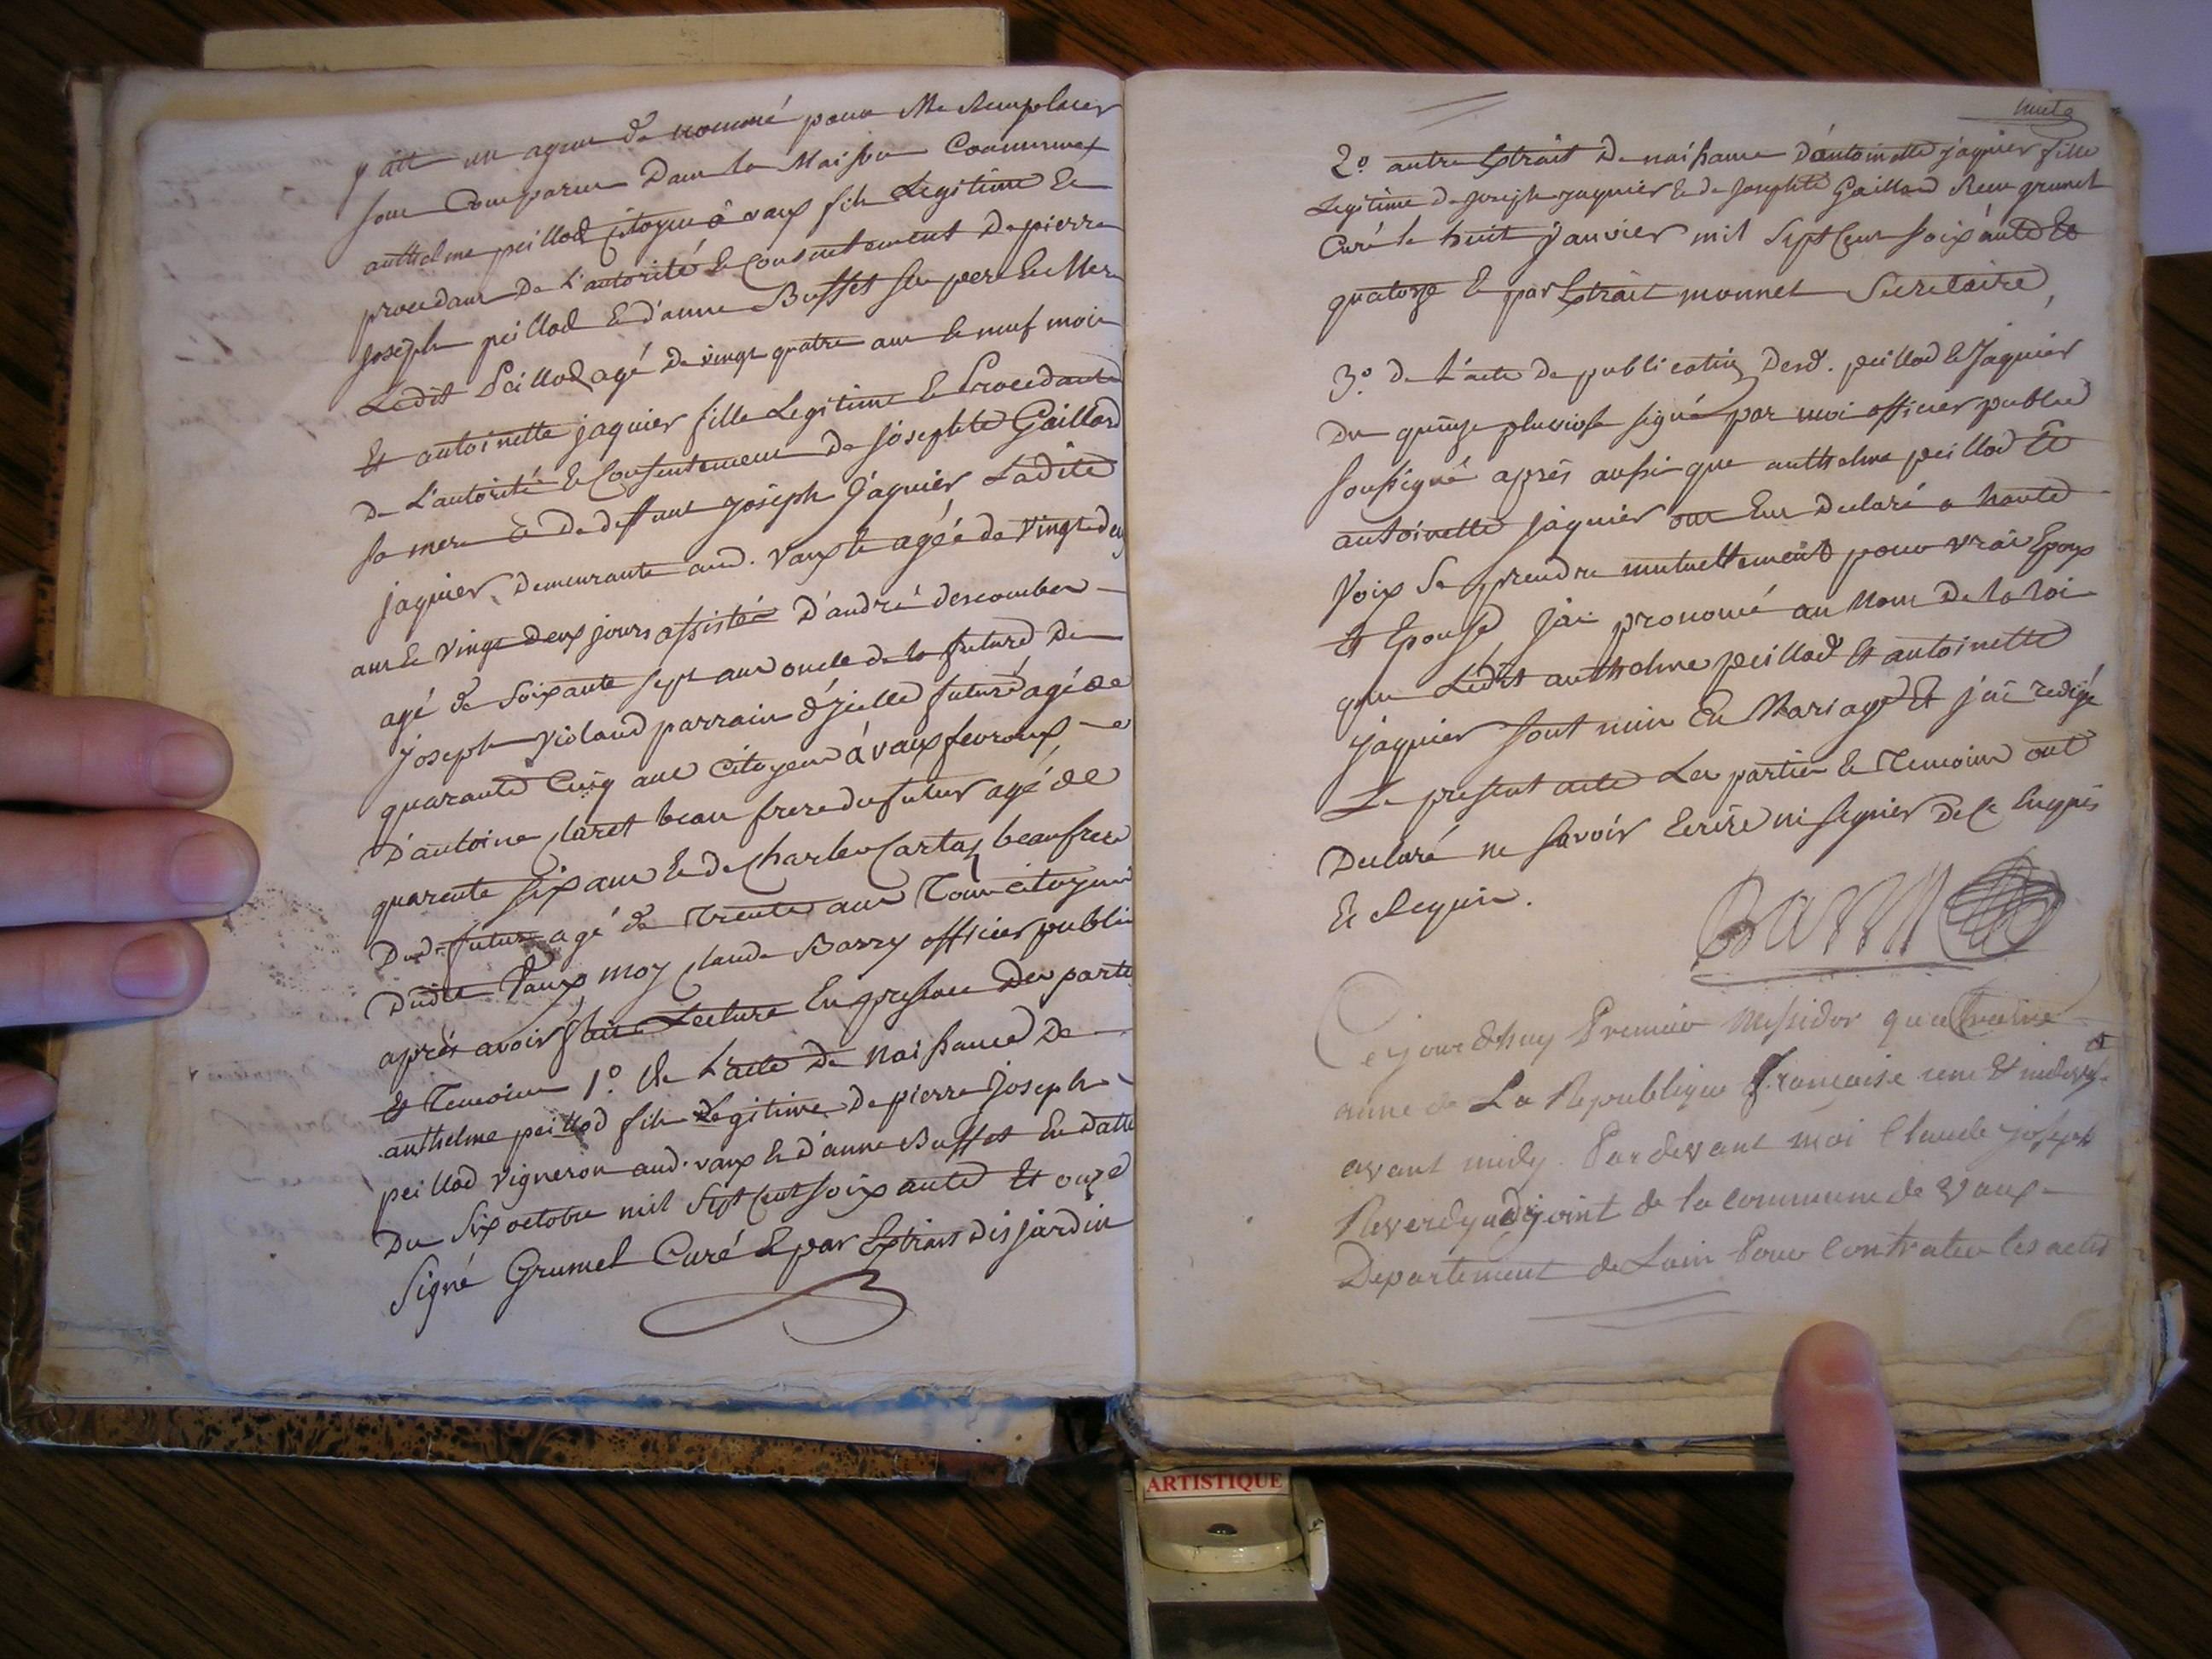 y ait un agent de nommé pour Me Remplacer
sont Comparus Dans la Maison Commune
anthelme peillod Citoyen à vaux fils Legitime Et
procedant De L'autorité & Consentement De pierre
Joseph peillod & d'anne Buffet ses pere & Mere
Ledit Peillod agé De vingt quatre ans & neuf mois
Et antoinette jaquier fille Legitime & Procedante
De L'autorité & Consentement De josephte Gaillard
sa mere & De deffunt joseph Jaquier Ladite
jaquier Demeurante aud. vaux & agée de vingt deux
ans & vingt deux jours assistés D'andré descombes
agé de soixante sept ans oncle de la future De
joseph violand parrain d'jcelle future agé de
quarante Cinq ans Citoyens à vaux fevroux
D'antoine Claret beau frere du futur agé de
quarente six ans & de Charles Cartas beaufrere
Dud. futur agé de Trente ans Tous citoyens
Dudit Vaux moy Claude Barry officier public
aprés avoir fait Lecture En presence Des parties
Et Temoins 1.º De L'acte De Naissance De
anthelme peillod fils Legitime De pierre Joseph
peillod vigneron aud. vaux & d'anne Buffet En datte
Du six octobre mil sept Cent soixante Et onze
Signé Grumet Curé & par Extrait Disjardin
huit
2.º autre Extrait De naissance D'antoinette jaquier fille
Legitime De joseph jaquier & de Josephte Gaillard Signé grumet
Curé le huit janvier mil Sept Cent soixante Et
quatorze & par Extrait monnet Secretaire,
3.º De L'acte De publication Desd. peillod & Jaquier
Du quinze pluviose signé par moi officier public
soussigné aprés aussi que anthelme peillod Et
antoinette jaquier ont Eus Declaré a haute
Voix Se prendre mutuellement pour vrai Epoux
Et Epouse j'ai prononcé au Nom De la loi
que Ledit anthelme peillod Et antoinette
jaquier sont unis En Mariage Et j'ai redigé
Le present acte Les parties & Temoins ont
Declaré ne savoir Ecrire ni signer De Ce Enquis
& Requis.
Barry
Cejourdhuy Premier Messidor quatrieme
anné de La Republique Francaise une Et indivis.
avant midy. Pardevant moi Claude joseph
Reverdy adjoint de la commune de Vaux
Departement de Lain Pour Contrater les actes
ARTISTIQUE